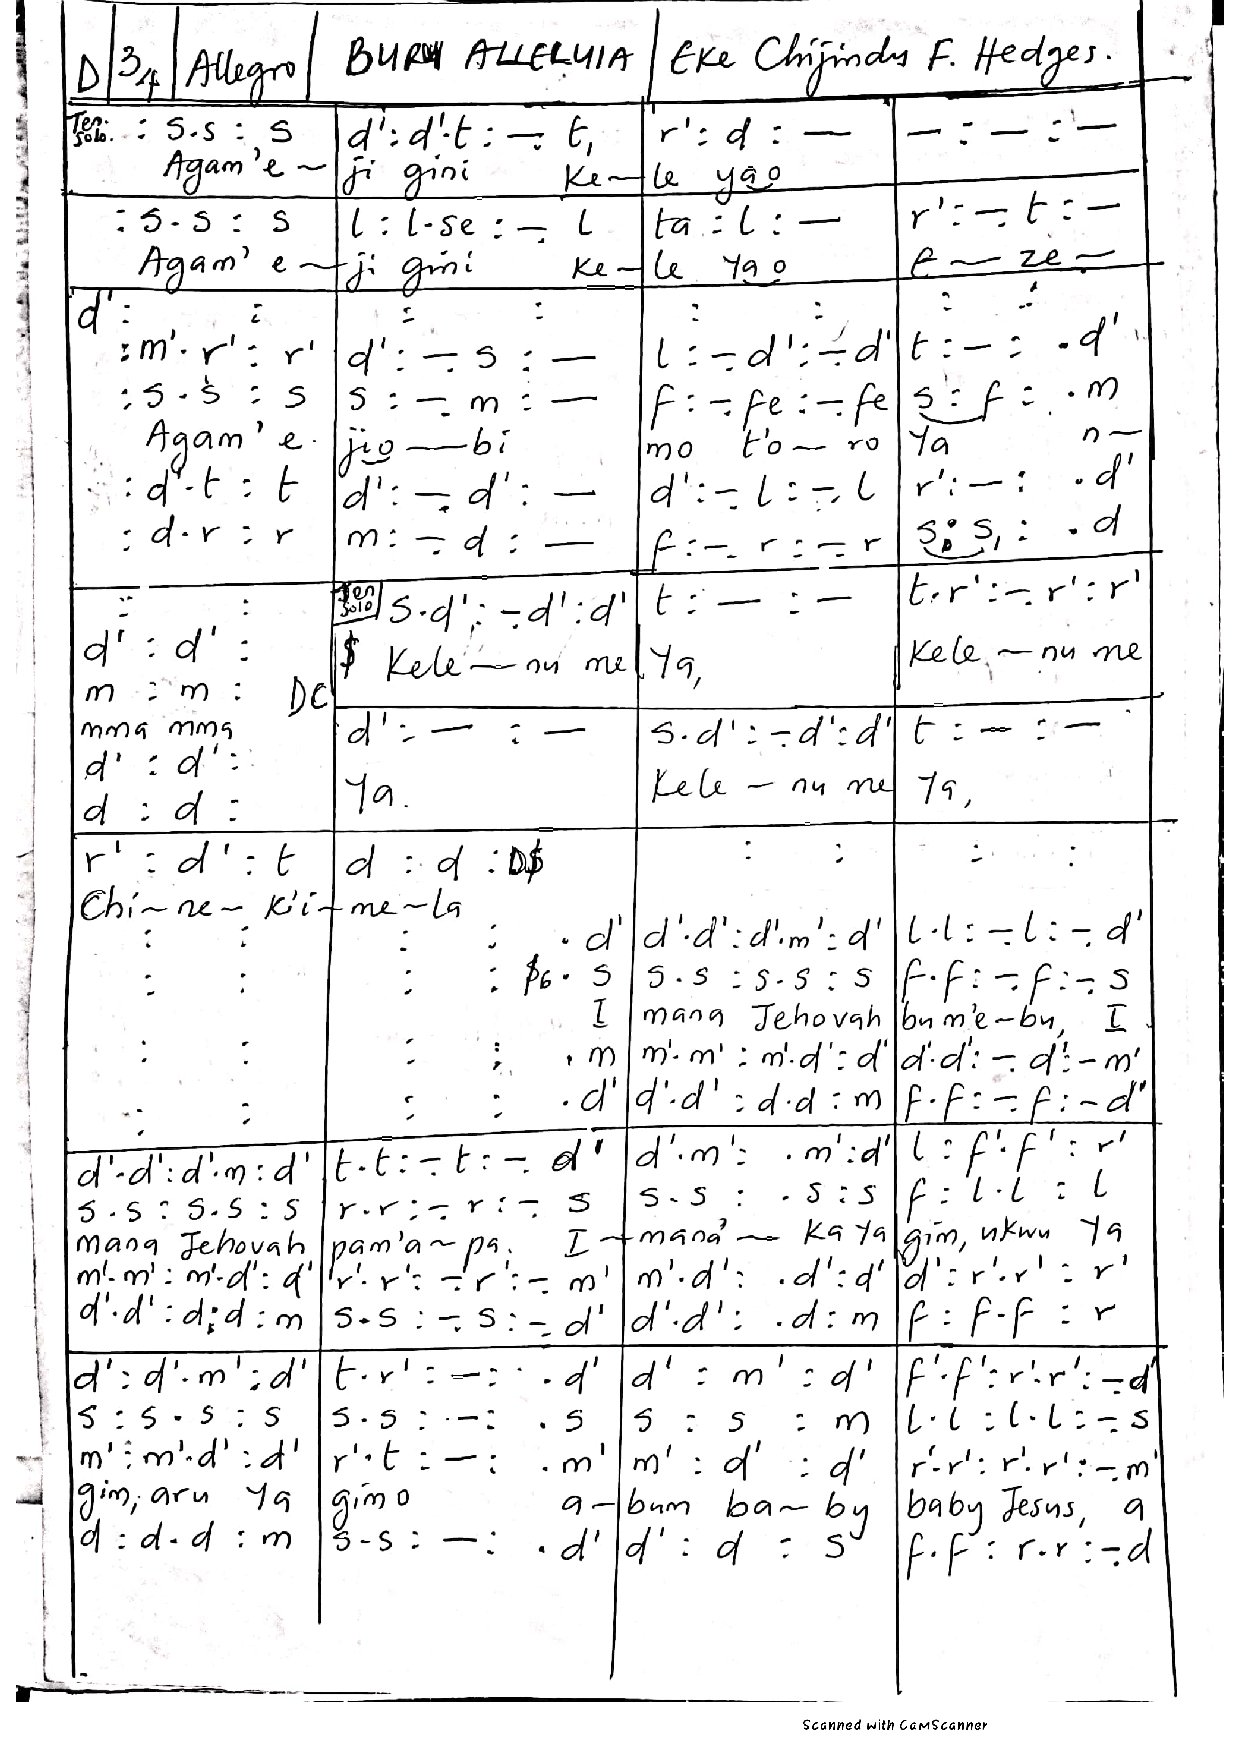 D | 3/4 | Allegro | BURU ALLELUIA | Eke Chijindu F. Hedges.
Ten. Solo. : s.s : s | d' : d'.t : -. t, | r' : d : — | — : — : —
Agam'e ~ ji gini Ke~le yao
: s.s : s | l : l.se : -. l | ta : l : — | r' : -. t : —
Agam' e ~ ji gini Ke~le Yao e — ze ~
d' : : | : : | : : | : :
: m'.r' : r' | d' : -. s : — | l : -. d' : -. d' | t : — : . d'
: s.s : s | s : -. m : — | f : -. fe : -. fe | s : f : . m
Agam' e. jio — bi mo t'o ~ ro Ya n~
: d'.t : t | d' : -. d' : — | d' : -. l : -. l | r' : — : . d'
: d.r : r | m : -. d : — | f : -. r : -. r | s : s, : . d
: : | Ten Solo s.d' : -. d' : d' | t : — : — | t.r' : -. r' : r'
d' : d' : | $ Kele — nu me | Ya, | Kele, ~ nu me
m : m : DC
mma mma | d' : — : — | s.d' : -. d' : d' | t : — : —
d' : d' :
d : d : | Ya. | Kele ~ nu me | Ya,
r' : d' : t | d : d : D$ | : : | : :
Chi ~ ne ~ k'i ~ me ~ la
: : | : : . d' | d'.d' : d'.m' : d' | l.l : -. l : -. d'
: : | : : $6 . s | s.s : s.s : s | f.f : -. f : -. s
I mana Jehovah bu m'e ~ bu, I
: : | : : . m | m'.m' : m'.d' : d' | d'.d' : -. d' : - m'
: : | : : . d' | d'.d' : d.d : m | f.f : -. f : - d'
d'.d' : d'.m : d' | t.t : -. t : -. d' | d'.m' : . m' : d' | l : f'.f' : r'
s.s : s.s : s | r.r : -. r : -. s | s.s : . s : s | f : l.l : l
mana Jehovah pam'a ~ pa. I ~ mana' ~ ka Ya gim, ukwu Ya
m'.m' : m'.d' : d' | r'.r' : -. r' : -. m' | m'.d' : . d' : d' | d' : r'.r' : r'
d'.d' : d.d : m | s.s : -. s : -. d' | d'.d' : . d : m | f : f.f : r
d' : d'.m' : d' | t.r' : — : . d' | d' : m' : d' | f'.f' : r'.r' : -. d'
s : s.s : s | s.s : — : . s | s : s : m | l.l : l.l : -. s
m' : m'.d' : d' | r'.t : — : . m' | m' : d' : d' | r'.r' : r'.r' : -. m'
gim, aru Ya gimo a ~ bum ba ~ by baby Jesus, a
d : d.d : m | s.s : — : . d' | d' : d : s | f.f : r.r : -. d
Scanned with CamScanner